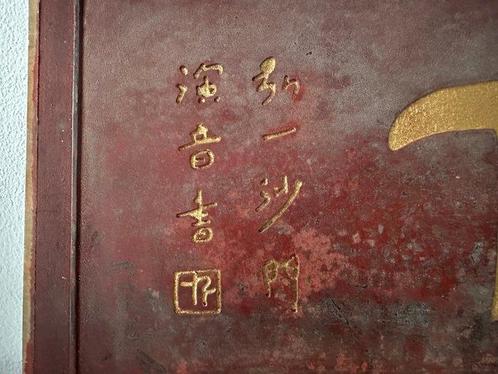 弘一沙門
演音書